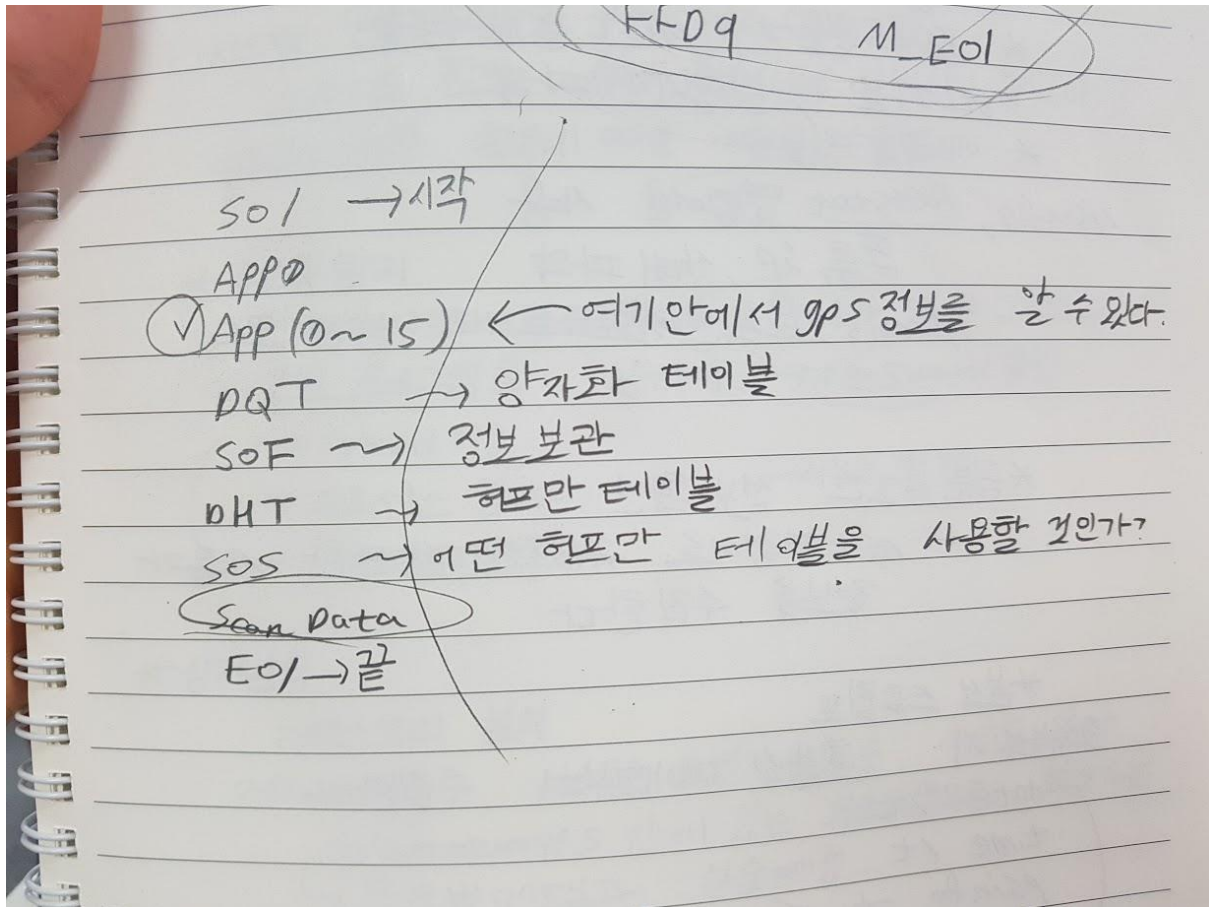 FFD9 M_EOI
SOI → 시작
APP0
App (0~15) ← 여기안에서 gps 정보를 알 수 있다.
DQT → 양자화 테이블
SOF → 정보 보관
DHT → 허프만 테이블
SOS → 어떤 허프만 테이블을 사용할 것인가?
Scan Data
EOI → 끝